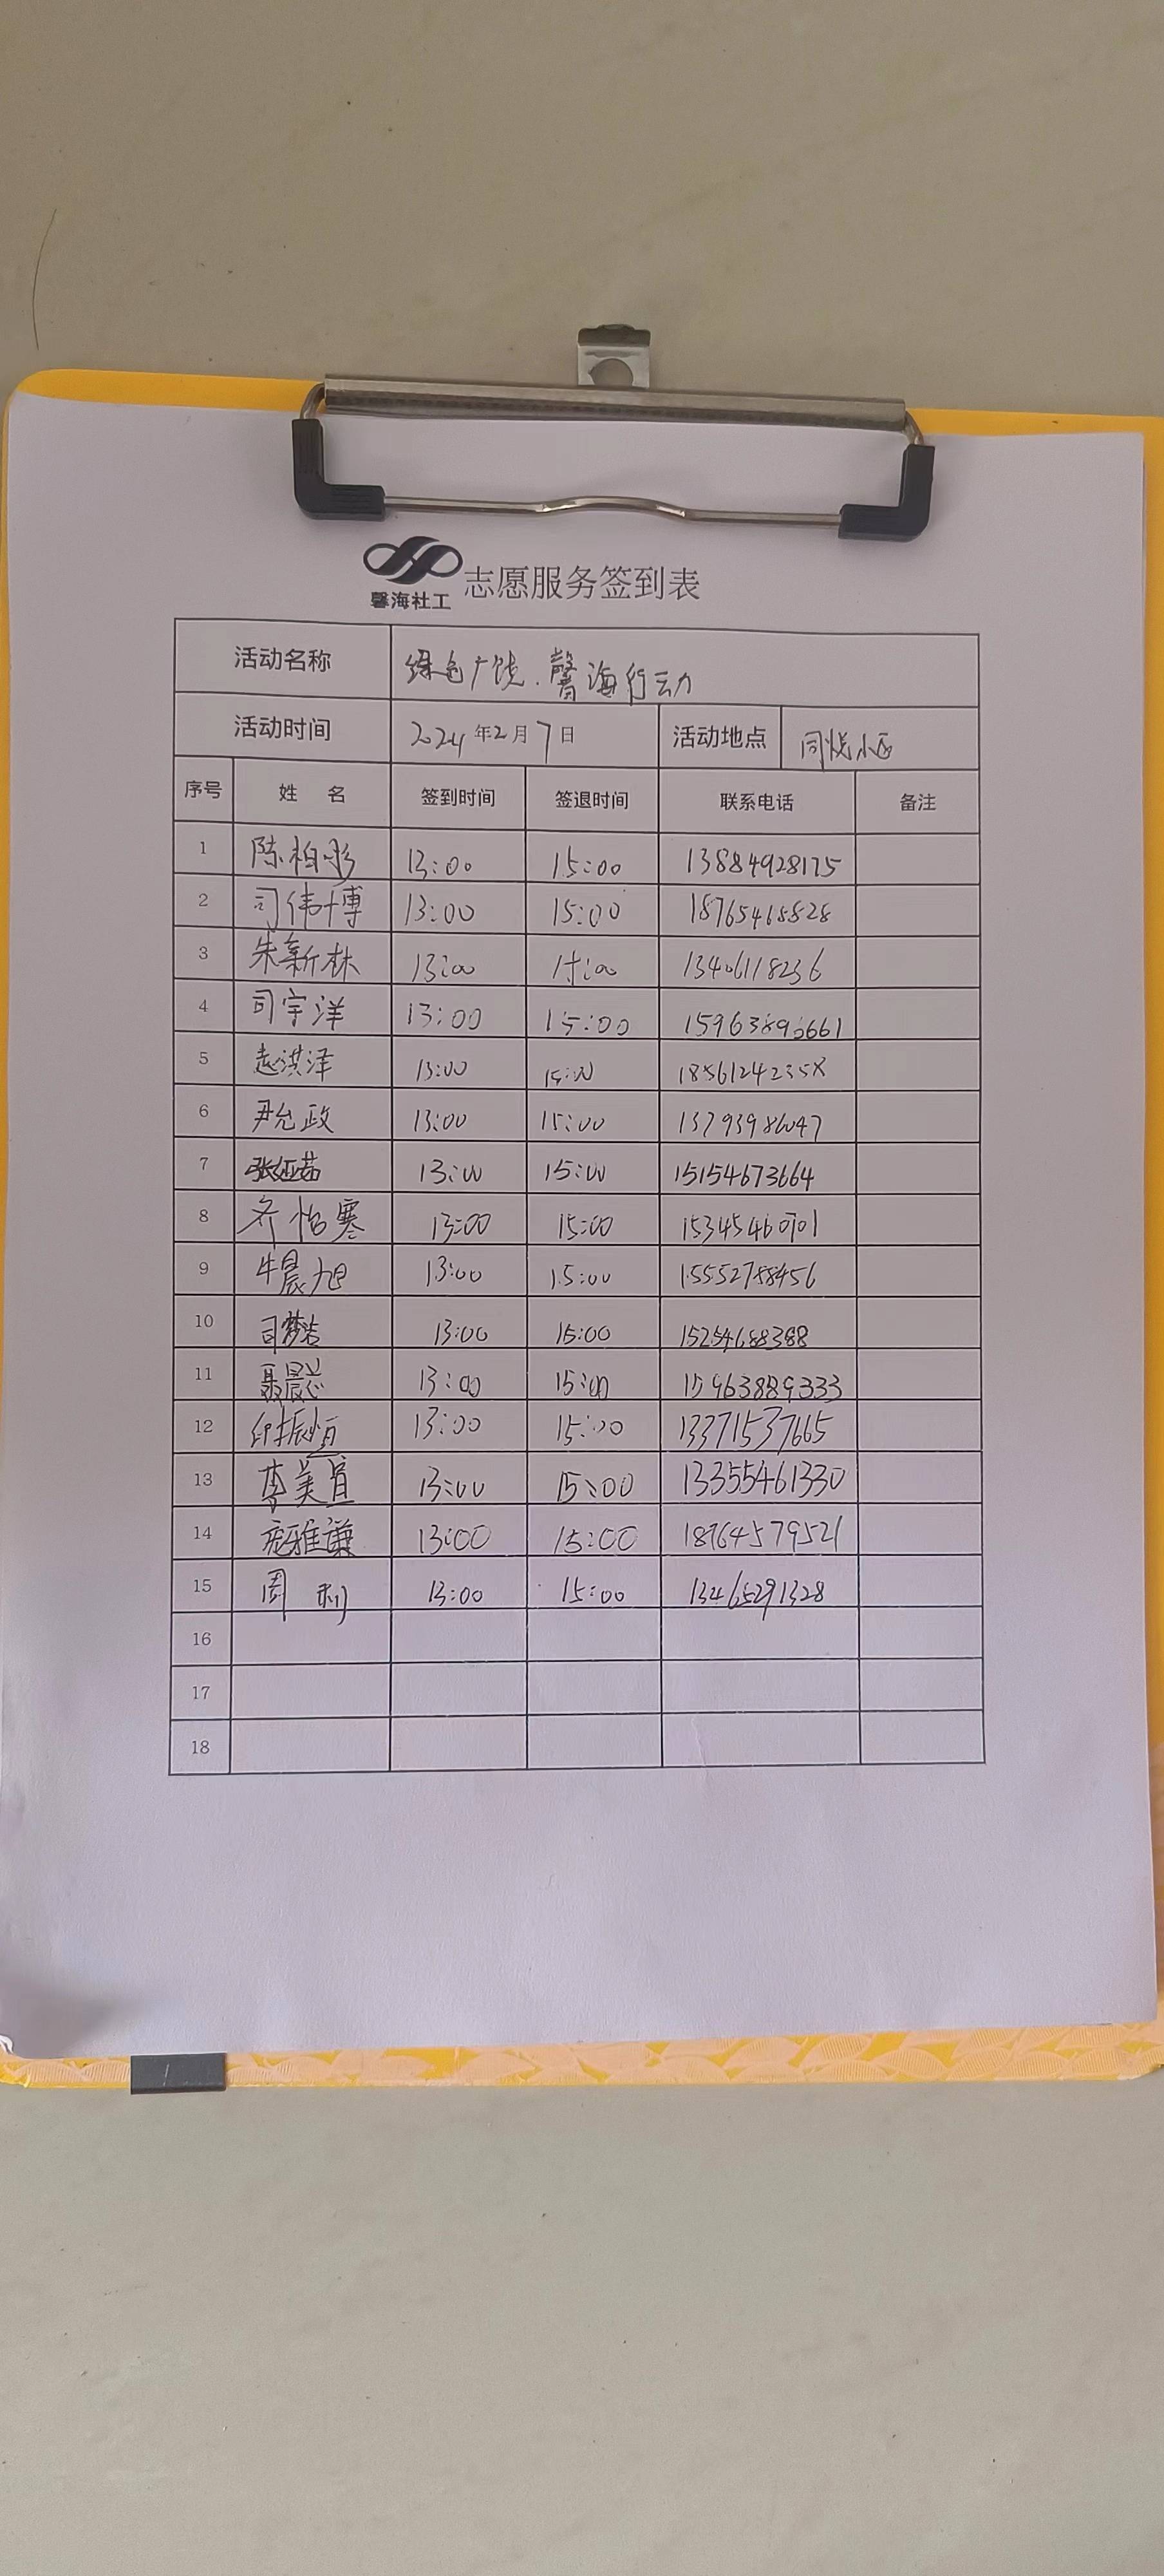 馨海社工 志愿服务签到表
活动名称 绿色广饶.馨海行动
活动时间 2024年2月7日 活动地点 同悦小区
序号 姓名 签到时间 签退时间 联系电话 备注
1 陈柏彤 13:00 15:00 13884928175
2 司伟博 13:00 15:00 18765468828
3 朱新林 13:00 15:00 13406118236
4 司宇洋 13:00 15:00
5 赵洪泽 13:00 15:00
6 尹允政 13:00 15:00
7 张娅茹 13:00 15:00 15154673664
8 齐怡寒 13:00 15:00
9 牛晨旭 13:00 15:00 15552788456
10 司梦洁 13:00 15:00 15254688388
11 聂晨芯 13:00 15:00 15963889333
12 印振恒 13:00 15:00 13371537665
13 李美萱 13:00 15:00 13355461330
14 庞雅谦 13:00 15:00 18764579521
15 周利 13:00 15:00 13465291328
16
17
18